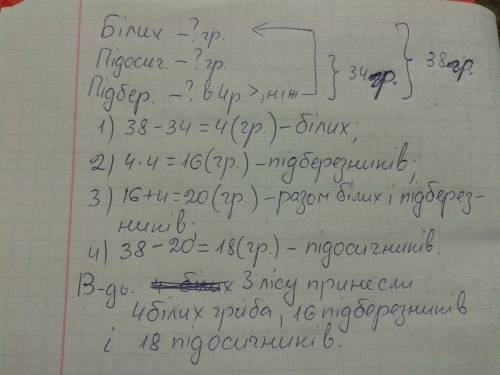 Білих – ? гр.
Підосич. – ? гр. } 34 гр. } 38 гр.
Підбер. – ? в 4 р. >, ніж
1) 38 – 34 = 4 (гр.) – білих;
2) 4 · 4 = 16 (гр.) – підберезників;
3) 16 + 4 = 20 (гр.) – разом білих і підберез-
ників;
4) 38 – 20 = 18 (гр.) – підосичників.
В-дь. З лісу принесли
4 білих гриба, 16 підберезників
і 18 підосичників.